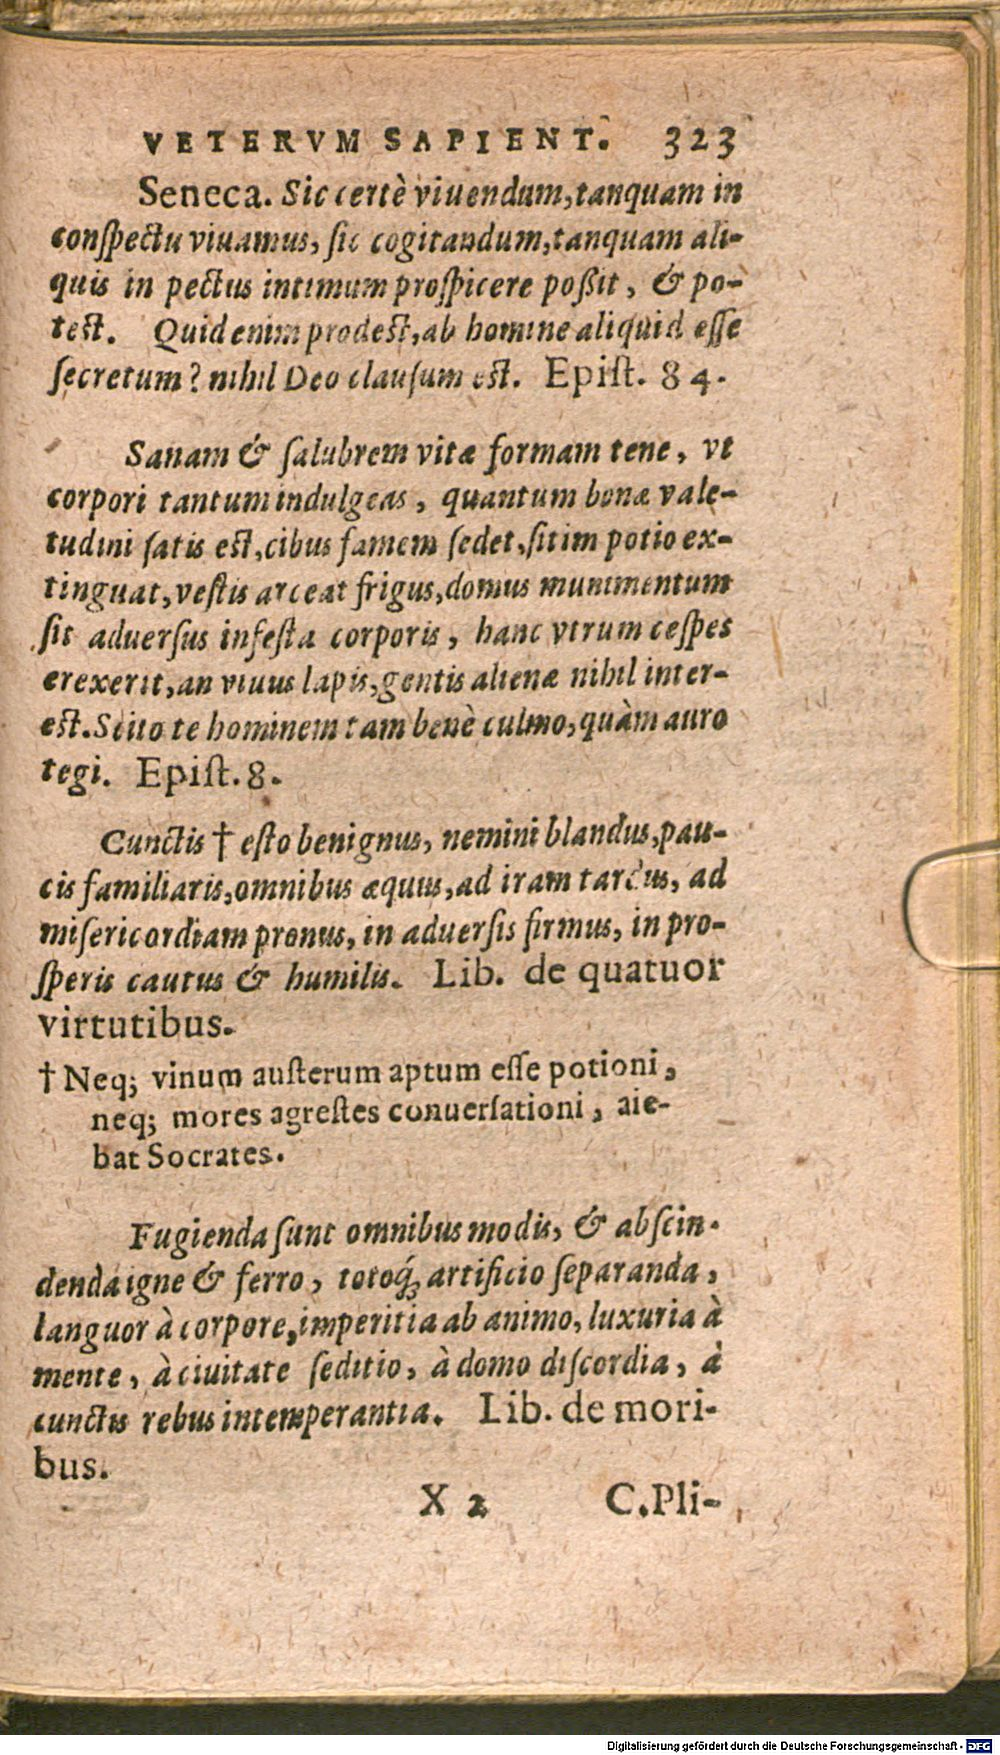 VETERVM SAPIENT. 323
Seneca. Sic certè viuendum, tanquam in
conſpectu viuamus, ſic cogitandum, tanquam ali-
quis in pectus intimum proſpicere poßit, & po-
test. Quid enim prodest, ab homine aliquid eſſe
ſecretum? nihil Deo clauſum est. Epiſt. 84.
Sanam & ſalubrem vitæ formam tene, vt
corpori tantum indulgeas, quantum bonæ vale-
tudini ſatis est, cibus famem ſedet, ſitim potio ex-
tinguat, veſtis arceat frigus, domus munimentum
ſit aduerſus infeſta corporis, hanc vtrum ceſpes
erexerit, an viuus lapis, gentis alienæ nihil inter-
est. Scito te hominem tam benè culmo, quàm auro
tegi. Epiſt. 8.
Cunctis † eſto benignus, nemini blandus, pau-
cis familiaris, omnibus æquus, ad iram tardus, ad
miſericordiam pronus, in aduerſis firmus, in pro-
ſperis cautus & humilis. Lib. de quatuor
virtutibus.
† Neq; vinum auſterum aptum eſſe potioni,
neq; mores agreſtes conuerſationi, aie-
bat Socrates.
Fugienda ſunt omnibus modis, & abſcin-
denda igne & ferro, totoq́; artificio ſeparanda,
languor à corpore, imperitia ab animo, luxuria à
mente, à ciuitate ſeditio, à domo diſcordia, à
cunctis rebus intemperantia. Lib. de mori-
bus.
X 2 C. Pli-
Digitalisierung gefördert durch die Deutsche Forschungsgemeinschaft - DFG